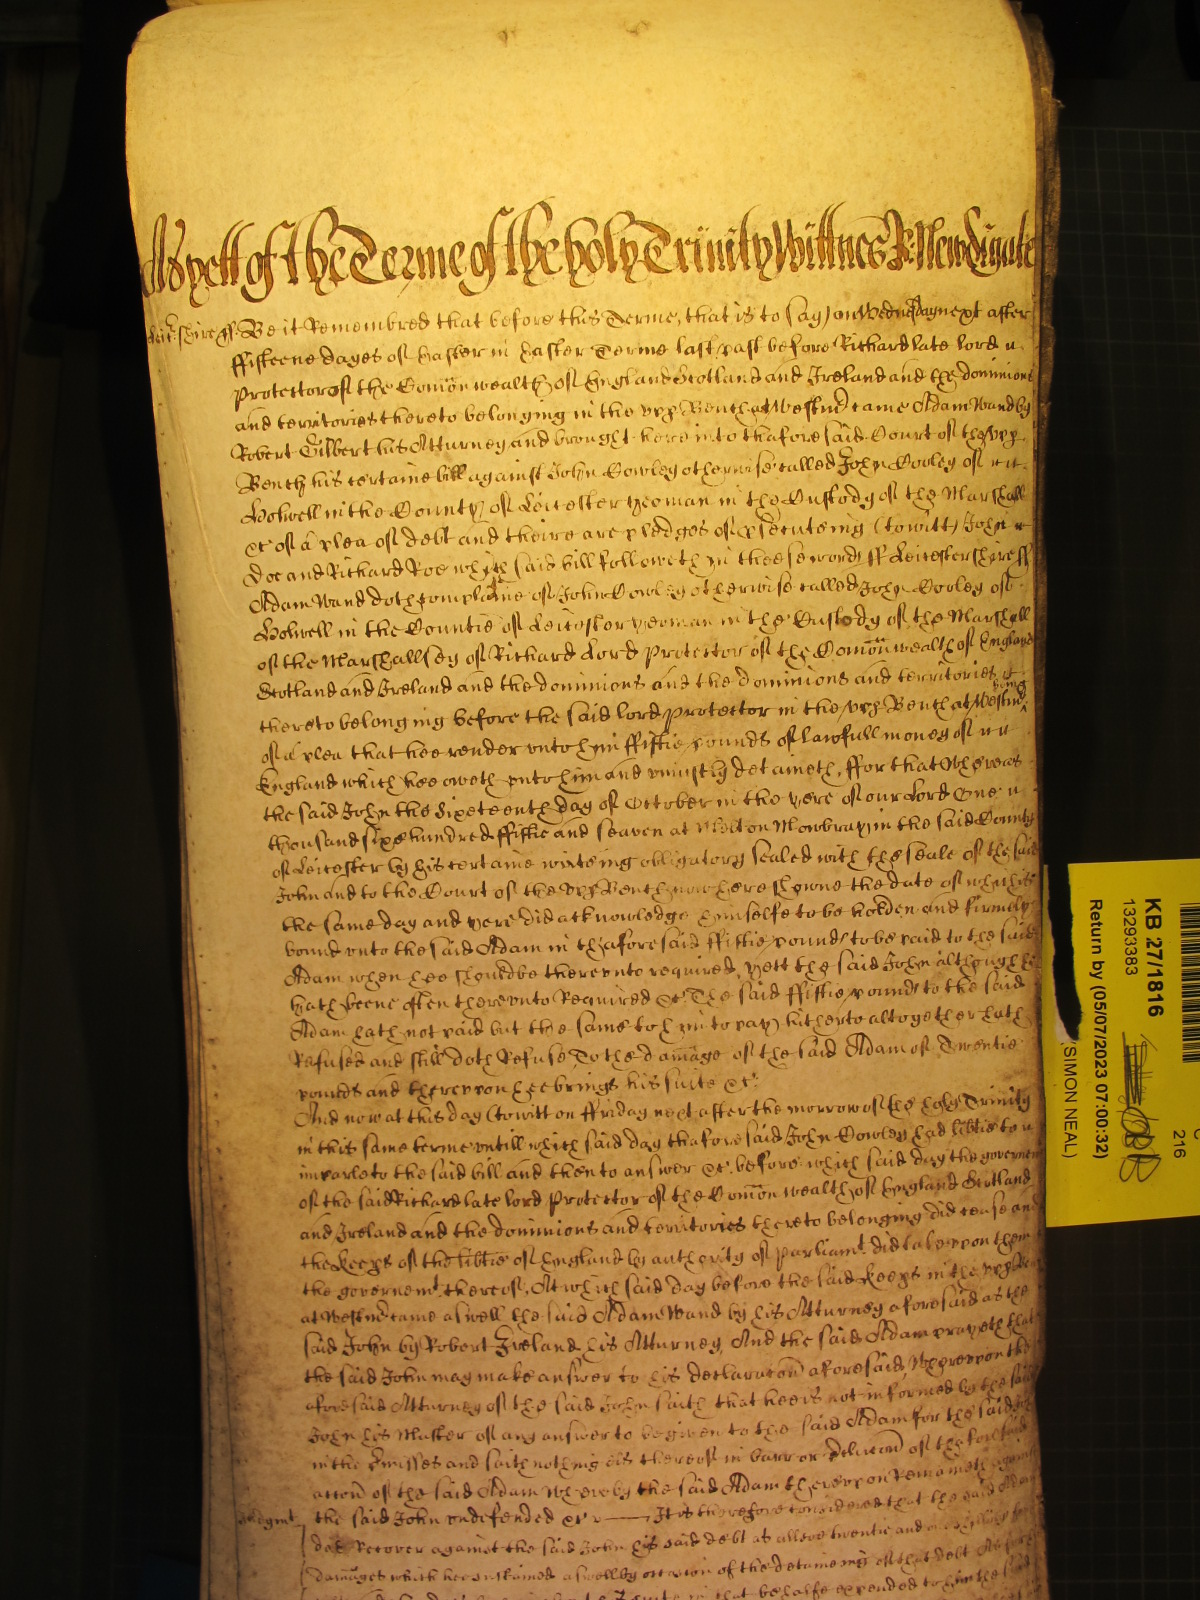 As yett of the Terme of the holy Trinity Wittnes R: Newdigate
Leic: shire ss: Be it Remembred that before this Terme, that is to say on Wednesday next after
ffifteene dayes of Easter in Easter Terme last past before Richard late lord
Protector of the Com̄on wealth of England Scotland and Ireland and the dominions
and territories thereto belonging in the vpp Bench at Westmr came Adam Wand by
Robert Gilbert his Atturney and brought here into thaforesaid Court of the vpp
Bench his certaine bill against John Cowley otherwise called John Cowley of
Holwell in the County of Leicester yeoman in the Custody of the Marshall
&c of a plea of debt and theire are pledges of psecuteing (to witt) John
Doe and Richard Roe which said bill followeth in theese words ss Leicestershire ss
Adam Wand doth complaine of John Cowley otherwise called John Cowley of
Holwell in the Countie of Leicester yeoman in the Custody of the Marshall
of the Marshallsey of Richard Lord Protector of the Com̄on wealth of England
Scotland and Ireland and the dominions and the dominions and territories
thereto belonging before the said lord Protector in the vpp Bench at Westmr being
of a plea that hee render vnto him ffiftie pounds of lawfull money of
England which hee oweth vnto him and vniustly detaineth, ffor that Whereas
the said John the Sixteenth day of October in the yere of our Lord One
thousand sixe hundred ffiftie and seaven at Melton Mowbray in the said County
of Leicester by his certaine writeing obligatory sealed with the seale of the said
John and to the Court of the vpp Bench now here showne the date of which is
the same day and yere did acknowledge himselfe to be holden and firmely
bound vnto the said Adam in thaforesaid ffiftie pounds to be paid to the said
Adam when hee should be therevnto required, yett the said John although hee
hath beene often therevnto Required &c The said ffiftie pounds to the said
Adam hath not paid but the same to him to pay hitherto altogether hath
Refused and still doth Refuse To the damage of the said Adam of Twentie
pounds and therevpon hee brings his suite &c.
And now at this day (to witt on ffriday next after the morrow of the holy Trinity
in this same terme vntill which said day thaforesaid John Cowley had libtie to
imparle to the said bill and then to answer &c. before which said day the governemt
of the said Richard late lord Protector of the Com̄on wealth of England Scotland
and Ireland and the dominions and territories thereto belonging did cease and
the Keeps of the libtie of England by authority of parliamt. did take vpon them
the governemt. thereof, At which said day before the said Keeps in the vpp Bench
at Westmr came aswell the said Adam Wand by his Atturney aforesaid as the
said John by Robert Ireland his Atturney, And the said Adam prayeth that
the said John may make answer to his declaracon aforesaid, Wherevpon the
aforesaid Atturney of the said John saith that hee is not informed by the said
John his Master of any answer to be given to the said Adam for the said John
in the pmisses and saith nothing els thereof in barr or preclucon of the foresaid
accon of the said Adam Whereby the said Adam therevpon Remaineth against
Judgmt the said John vndefended &c —— It is therefore considered that the said Adam
doe Recover against the said John his said debt as alsoe twentie and
damages which hee sustained aswell by occasion of the detaineing of that debt
in that behalfe expended to him the said
KB 27/1816
13293383
Return by (05/07/2023 07:00:32)
(SIMON NEAL)
216